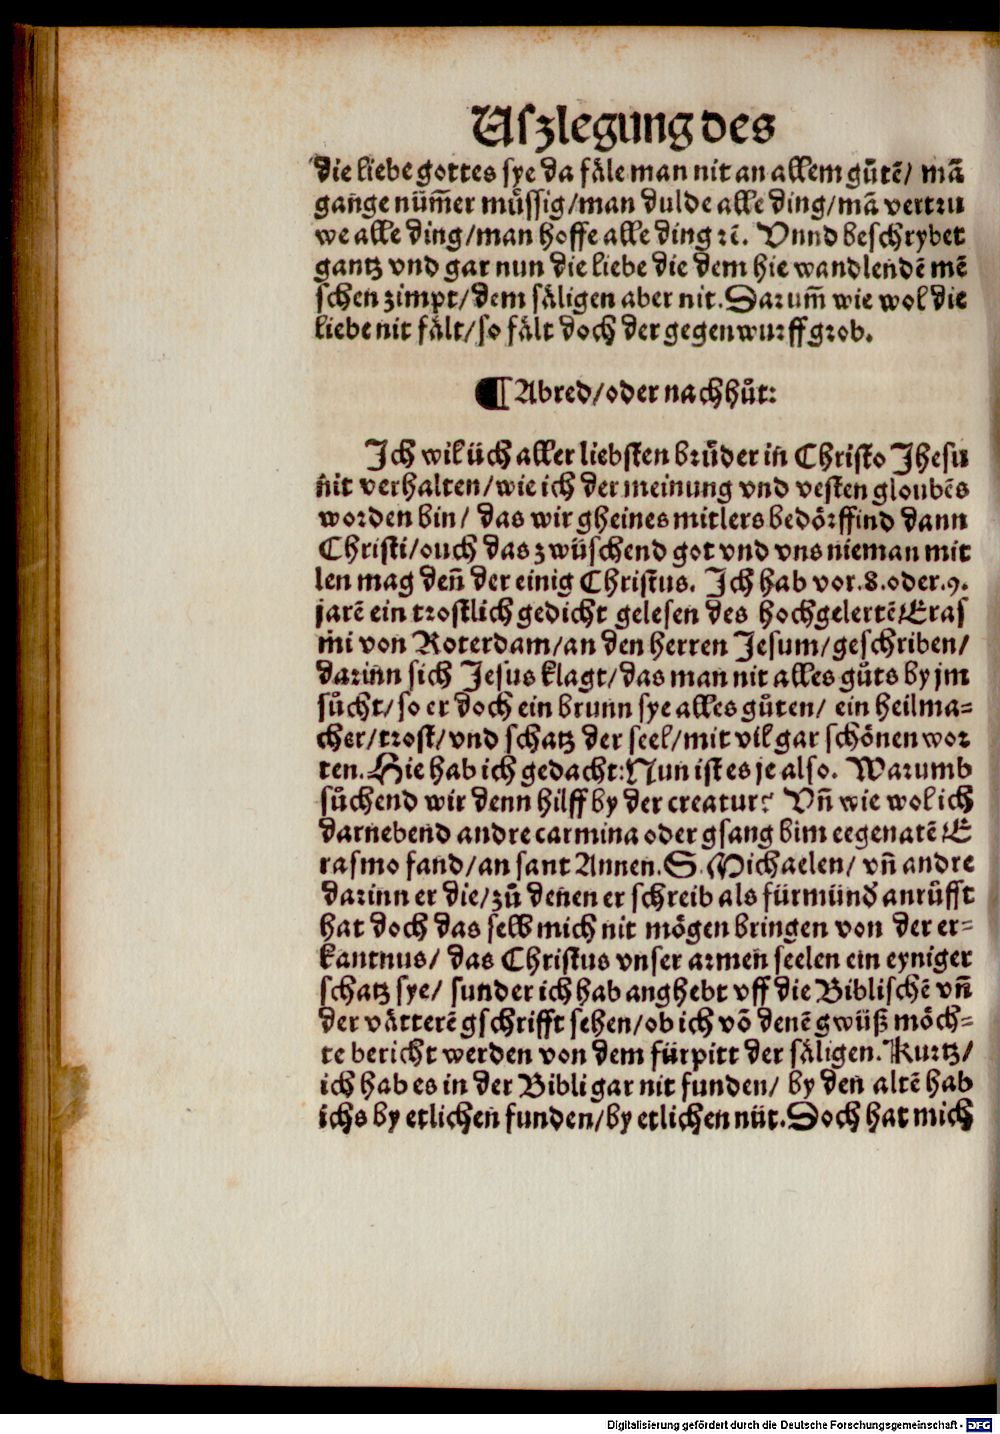 Uſzlegung des
die liebe gottes sye da fäle man nit an allem gůtē/ mā
gange nüm̄er müſſig/man dulde alle ding/mā vertru
we alle ding/man hoffe alle ding ꝛc̄. Vnnd beſchrybet
gantz vnd gar nun die liebe die dem hie wandlendē mē
ſchen zimpt/dem ſäligen aber nit. Darum̄ wie wol die
liebe nit fält/ſo fält doch der gegenwurff grob.
¶ Abred/oder nachhůt:
Ich wil üch aller liebſten brůder in Chriſto Jheſu
nit verhalten/wie ich der meinung vnd veſten gloubēs
worden bin/ das wir gheines mitlers bedörffind dann
Chriſti/ouch das zwüſchend got vnd vns nieman mit
len mag den̄ der einig Chriſtus. Ich hab vor.8.oder.9.
jarē ein troſtlich gedicht geleſen des hochgelertē Eraſ
mi von Roterdam/an den herren Jeſum/geſchriben/
darinn ſich Jeſus klagt/das man nit alles gůts by jm
ſůcht/ſo er doch ein brunn ſye alles gůten/ ein heilma=
cher/troſt/vnd ſchatz der ſeel/mit vil gar ſchönen wor
ten. Hie hab ich gedacht: Nun iſt es je alſo. Warumb
ſůchend wir denn hilff by der creatur? Vn̄ wie wol ich
darnebend andre carmina oder gſang bim eegenatē E
raſmo fand/an ſant Annen. S. Michaelen/ vn̄ andre
darinn er die/zů denen er ſchreib als fürmünd anrůfft
hat doch das ſelb mich nit mögen bringen von der er=
kantnus/ das Chriſtus vnſer armen ſeelen ein eyniger
ſchatz ſye/ ſunder ich hab anghebt vff die Bibliſchē vn̄
der vätterē gſchrifft ſehen/ob ich vō denē gwüß möch=
te bericht werden von dem fürpitt der ſäligen. Kurtz/
ich hab es in der Bibli gar nit funden/ by den altē hab
ichs by etlichen funden/by etlichen nüt. Doch hat mich
Digitalisierung gefördert durch die Deutsche Forschungsgemeinschaft - DFG